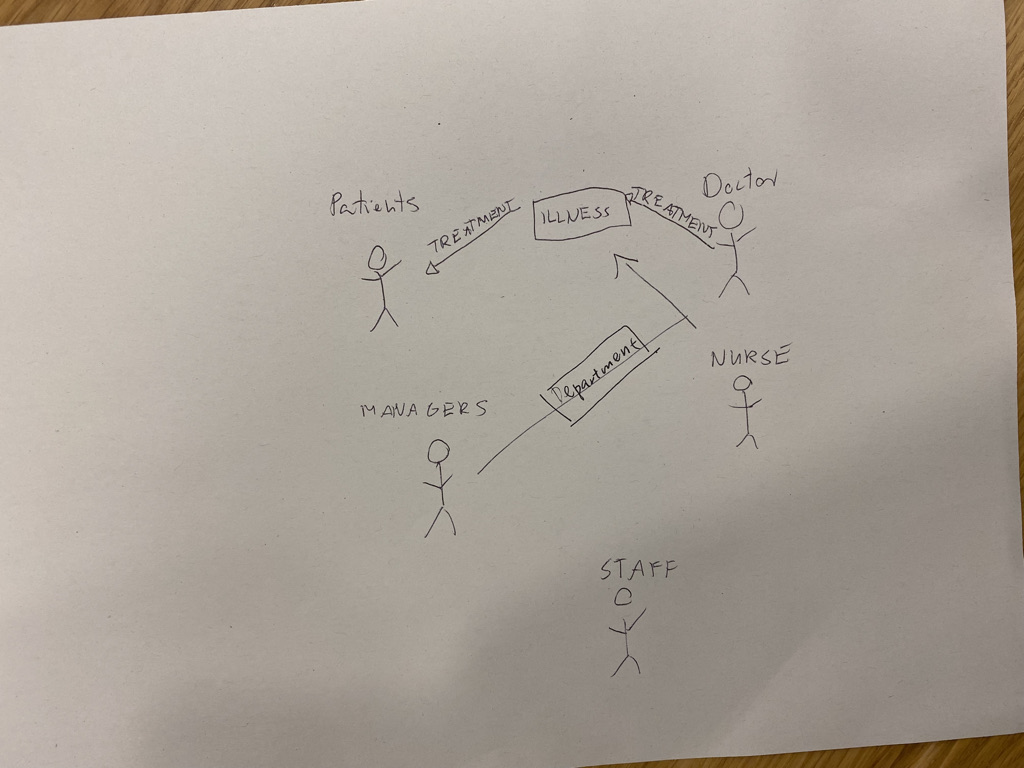 Patients
TREATMENT
ILLNESS
TREATMENT
Doctor
Department
NURSE
MANAGERS
STAFF